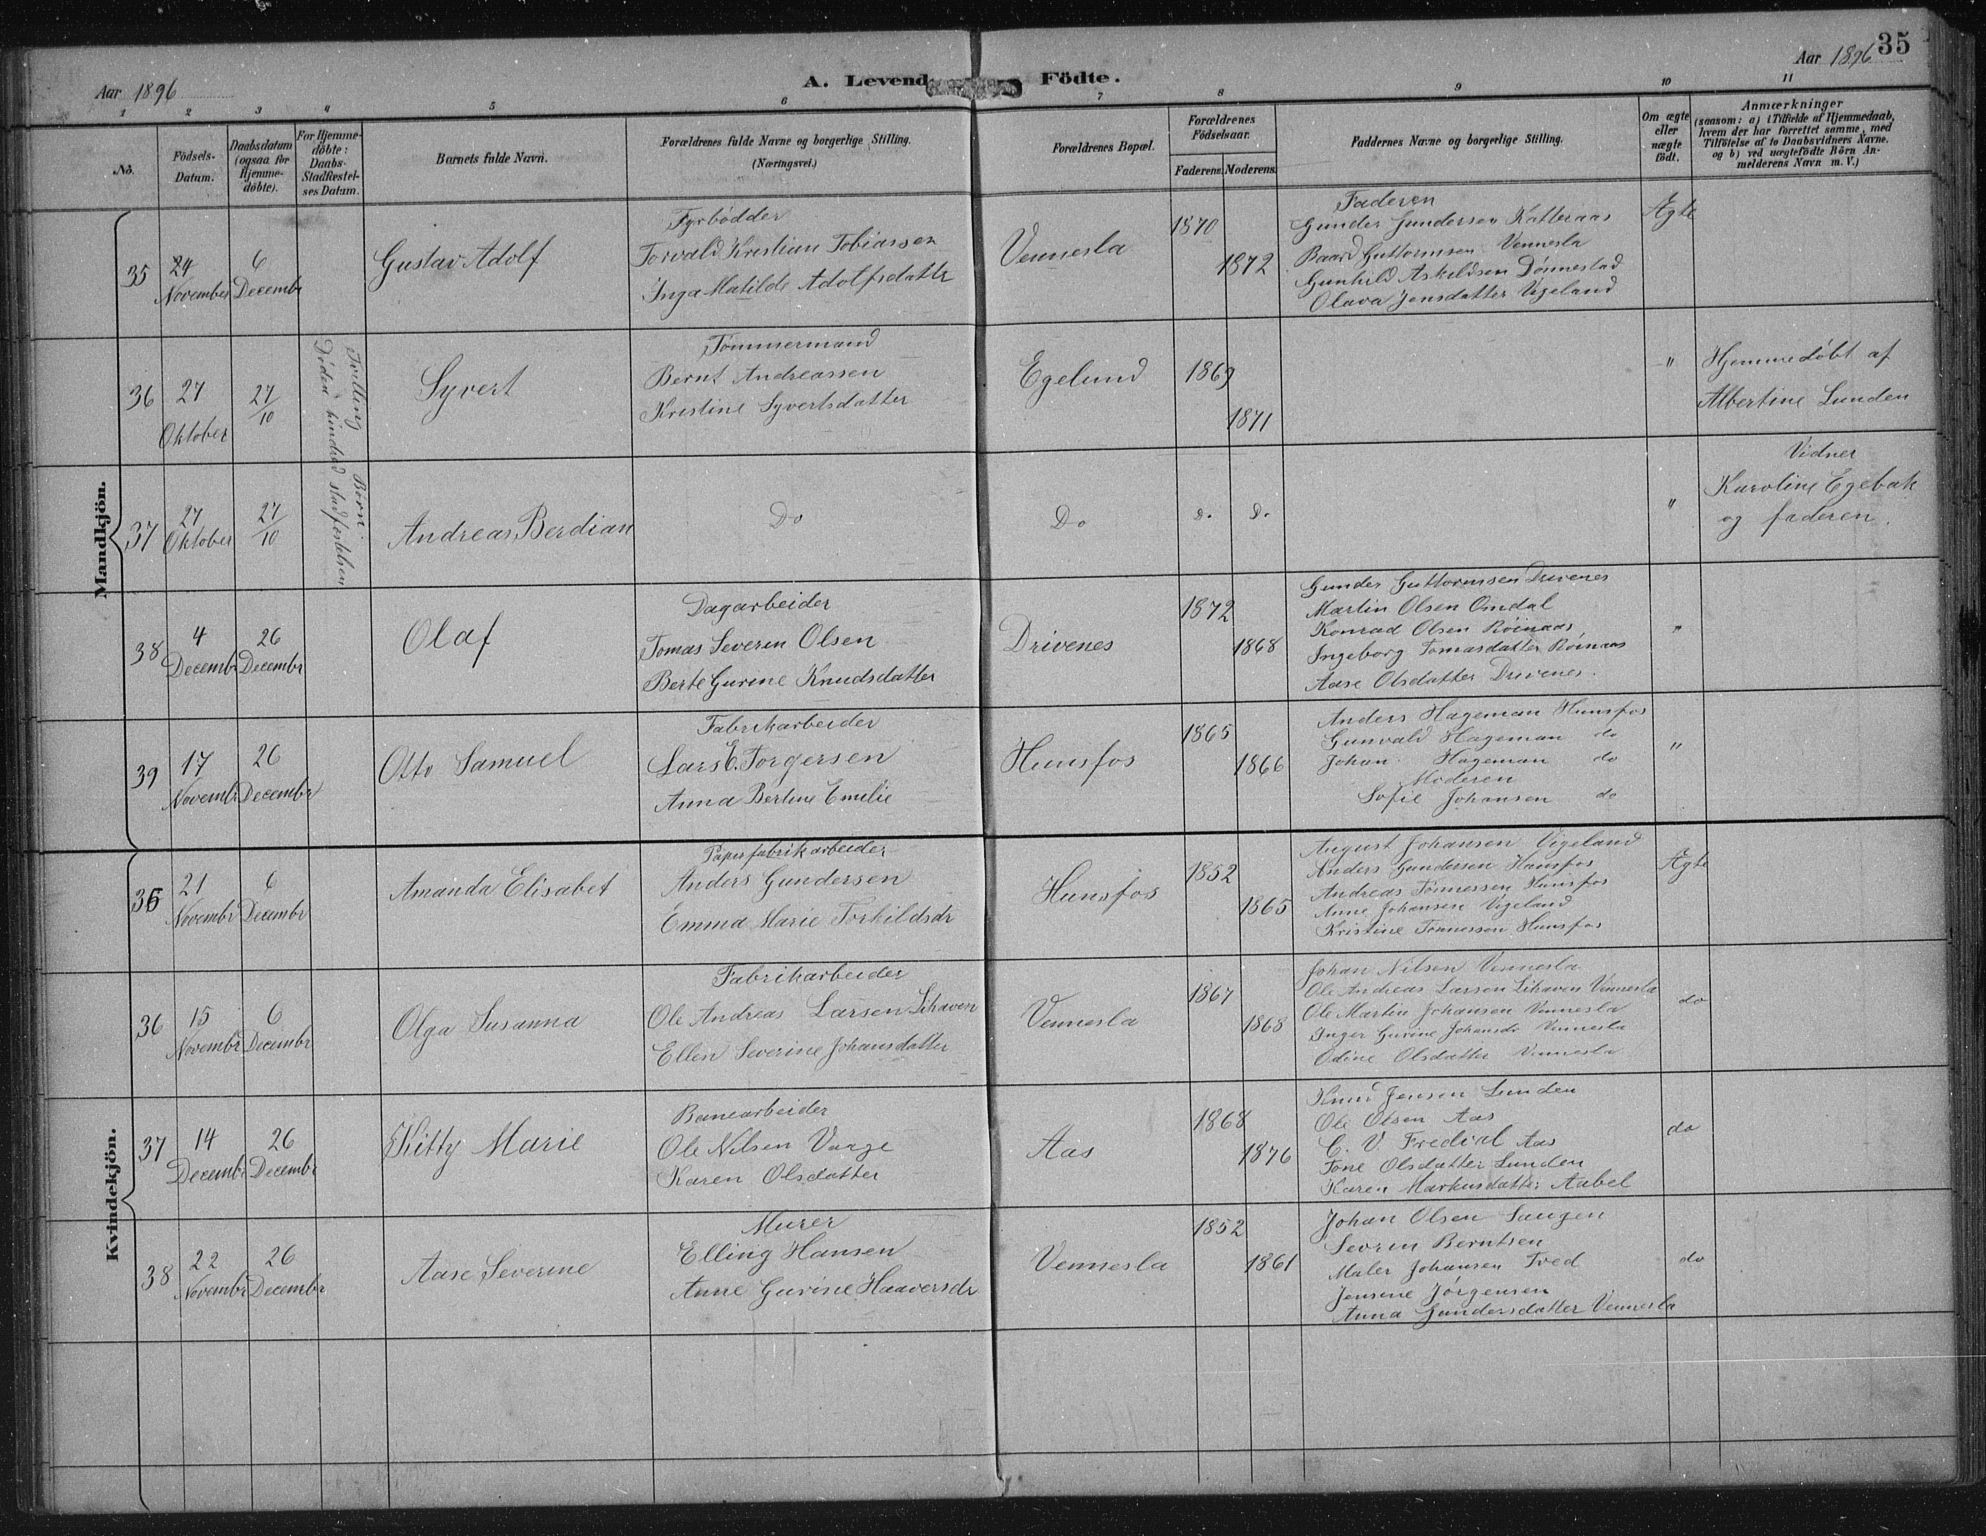 35
Aar 1896
A. Levende Födte.
Aar 1896
1 2 3 4 5 6 7 8 9 10 11
No.
Födsels-Datum.
Daabsdatum (ogsaa for Hjemme-döbte).
For Hjemme-döbte: Daabs-Stadfæstel-ses Datum.
Barnets fulde Navn.
Forældrenes fulde Navne og borgerlige Stilling. (Næringsvei.)
Forældrenes Bopæl.
Forældrenes Födselsaar.
Faderens. Moderens.
Faddernes Navne og borgerlige Stilling.
Om ægte eller uægte födt.
Anmærkninger
(saasom: a) i Tilfælde af Hjemmedaab, hvem der har forrettet samme, med Tilföielse af to Daabsvidners Navne. og b) ved uægtefödte Börn An-melderens Navn m. V.)
Mandkjön.
35
24 November
6 Decembr
Gustav Adolf
Fyrbødder
Torvald Kristian Tobiassen
Inga Matilde Adolfsdatter
Vennesla
1870
1872
Faderen
Gunder Gundersen Katteraas
Baard Guttormsen Vennesla
Gunhild Askildsen Dønnestad
Olava Jensdatter Vigeland
Ægte
36
27 Oktober
27/10
Tvilling Børn
Døden hindred stadfestelsen
Syvert
Tømmermand
Bernt Andreassen
Kristine Syvertsdatter
Egelund
1869
1871
"
Hjemmedøbt af
Albertine Lunden
37
27 Oktober
27/10
Andreas Berdian
Do
Do
D.
D.
"
Vidner
Karoline Egebak
og faderen.
38
4 Decembr
26 Decembr
Olaf
Dagarbeider
Tomas Severin Olsen
Berte Gurine Knudsdatter
Drivenes
1872
1868
Gunder Guttormsen Drivenes
Martin Olsen Omdal
Konrad Olsen Røinaas
Ingeborg Tomasdatter Røinaas
Aase Olsdatter Drivenes.
"
39
17 Novembr
26 Decembr
Otto Samuel
Fabrikarbeider
Lars E. Torgersen
Anna Bertine Emilie
Hunsfos
1865
1866
Anders Hageman Hunsfos
Gunvald Hageman do
Johan Hageman do
Moderen
Sofie Johansen do
"
Kvindekjön.
35
21 Novembr
6 Decembr
Amanda Elisabet
Papirfabrikarbeider
Anders Gundersen
Emma Marie Torkildsdr
Hunsfos
1852
1865
August Johansen Vigeland
Anders Gundersen Hunsfos
Andreas Tønnessen Hunsfos
Anne Johansen Vigeland
Kristine Tønnessen Hunsfos
Ægte
36
15 Novembr
6 Decembr
Olga Susanna
Fabrikarbeider
Ole Andreas Larsen Lihaven
Ellen Severine Johansdatter
Vennesla
1867
1868
Johan Nilsen Vennesla
Ole Andreas Larsen Lihaven Vennesla
Ole Martin Johansen Vennesla
Inger Gurine Johansdr Vennesla
Odine Olsdatter Vennesla
do
37
14 Decembr
26 Decembr
Kitty Marie
Banearbeider
Ole Nilsen Vaage
Karen Olsdatter
Aas
1868
1876
Knud Jensen Lunden
Ole Olsen Aas
C. V. Aas
Tone Olsdatter Lunden
Karen Markusdatter Aabel
do
38
22 Novembr
26 Decembr
Aase Severine
Murer
Elling Hansen
Anne Gurine Haaversdr
Vennesla
1852
1861
Johan Olsen Saugen
Sevrin Berntsen
Maler Johansen Tved
Jensine Jørgensen
Anna Gundersdatter Vennesla
do